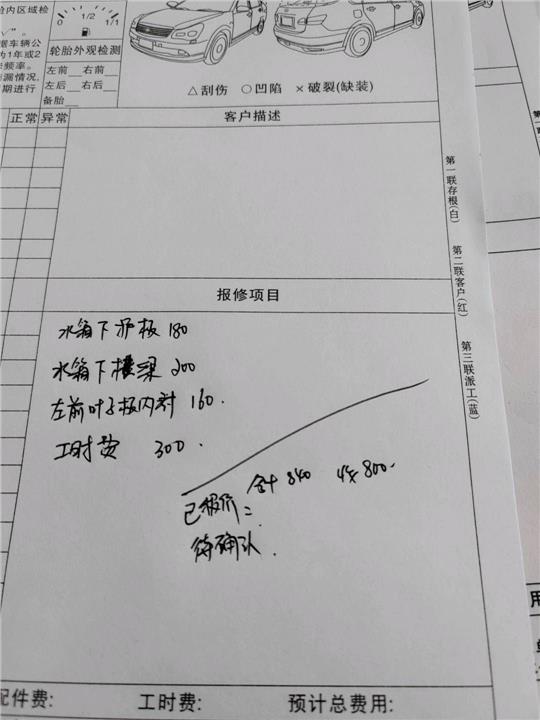 检内区域检
0 1/2 1/1
轮胎外观检测
左前 右前
左后 右后
备胎
据车辆公
为1年或2
频率。
漏情况,
期进行
△刮伤 ○凹陷 ×破裂(缺装)
正常 异常
客户描述
报修项目
水箱下护板 180
水箱下横梁 200
左前叶子板内衬 160.
工时费 300.
合计 840 收 800.
已报价=
待确认.
第一联存根(白)
第二联客户(红)
第三联派工(蓝)
配件费: 工时费: 预计总费用: